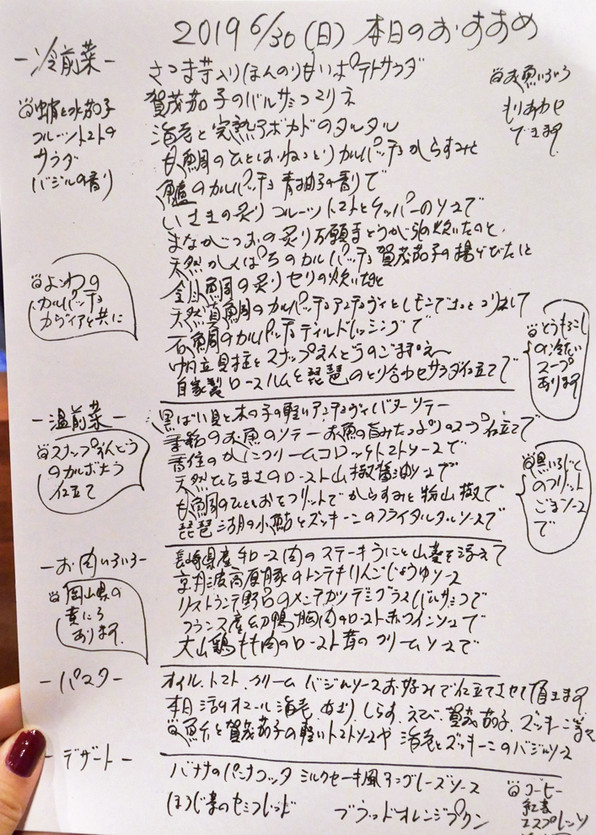 2019 6/30 (日) 本日のおすすめ
-冷前菜-
蛸と水茄子
フルーツトマトの
サラダ
バジルの香り
さつま芋入りほんのり甘いポテトサラダ
賀茂茄子のバルサミコマリネ
海老と完熟アボカドのタルタル
甘鯛のひとしおねっとりカルパッチョからすみと
鱸のカルパッチョ 青柚子の香りで
いさきの炙り フルーツトマトとケッパーのソースで
まながつおの炙り 万願寺とうがらしの炊いたのと
天然かんぱちのカルパッチョ 賀茂茄子の揚げびたしと
金目鯛の炙り セリの炊いたのと
天然真鯛のカルパッチョ アンチョヴィとレモンで
石鯛のカルパッチョ ディルドレッシングで
帆立貝柱とスナップえんどうのごま
自家製ロースハムと琵琶のとり合わせサラダ仕立てで
お魚いろいろ
もりあわせ
できます
よこわの
カルパッチョ
カヴィアと共に
とうもろこし
の冷たい
スープ
あります
-温前菜-
スナップえんどう
のカルボナラ
仕立て
黒ばい貝と木の子の軽いアンチョヴィバターソテー
季節のお魚のソテー お魚の旨みたっぷりのスープ仕立てで
香住のかにクリームコロッケ トマトソースで
天然ひらまさのロースト 山椒醤油ソースで
甘鯛のひとしおをフリットで からすみと粉山椒で
琵琶湖の小鮎とズッキーニのフライ タルタルソースで
黒いちじく
のフリット
ごまソース
で
-お肉いろいろ-
岡山県の
黄にら
あります
長崎県産牛ロース肉のステーキ うにと山葵を添えて
京丹波高原豚のトンテキ りんごじょうゆソース
リストランテ野呂のメンチカツ デミグラスバルサミコで
フランス産幼鴨胸肉のロースト 赤ワインソースで
大山鶏もも肉のロースト 茸のクリームソースで
-パスタ-
オイル、トマト、クリーム バジルソース お好みで仕立てさせて頂きます
本日 活オマール海老、あさり、しらす、えび、賀茂茄子、ズッキーニ等々
魚介と賀茂茄子の軽いトマトソースや 海老とズッキーニのバジルソース
-デザート-
バナナのパンナコッタ ミルクセーキ風アングレーズソース
ほうじ茶のセミフレッド ブラッドオレンジプリン
コーヒー
紅茶
エスプレッソ